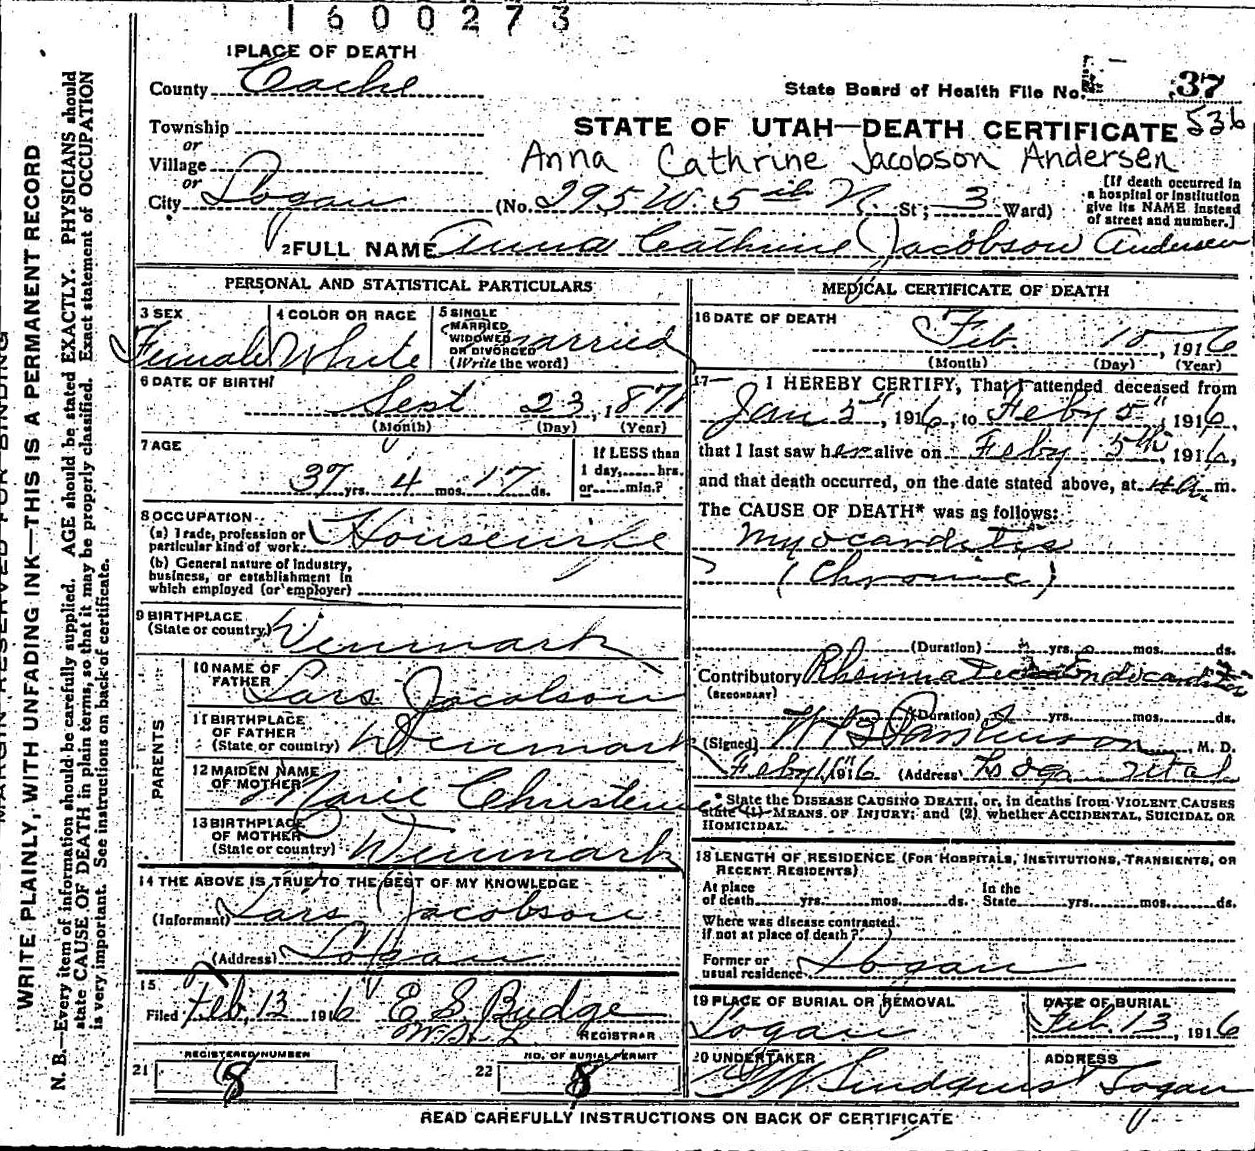 1600273
1 PLACE OF DEATH
County Cache
State Board of Health File No. 37
536
Township
or
Village
or
City Logan
STATE OF UTAH—DEATH CERTIFICATE
Anna Cathrine Jacobson Andersen
(No. 295 W. 5th N. St; 3 Ward)
[If death occurred in
a hospital or institution
give its NAME instead
of street and number.]
2 FULL NAME Anna Cathrine Jacobson Andersen
PERSONAL AND STATISTICAL PARTICULARS
3 SEX
Female
4 COLOR OR RACE
White
5 SINGLE
MARRIED
WIDOWED
OR DIVORCED
(Write the word)
Married
6 DATE OF BIRTH
Sept 23, 187
(Month) (Day) (Year)
7 AGE
37 yrs. 4 mos. 17 ds.
If LESS than
1 day, hrs.
or min.?
8 OCCUPATION
(a) Trade, profession or
particular kind of work Housewife
(b) General nature of industry,
business, or establishment in
which employed (or employer)
9 BIRTHPLACE
(State or country) Denmark
PARENTS
10 NAME OF
FATHER Lars Jacobson
11 BIRTHPLACE
OF FATHER
(State or country) Denmark
12 MAIDEN NAME
OF MOTHER Marie
13 BIRTHPLACE
OF MOTHER
(State or country) Denmark
14 THE ABOVE IS TRUE TO THE BEST OF MY KNOWLEDGE
(Informant) Lars Jacobson
(Address) Logan
15
Filed Feb. 13 1916 E S Budge
REGISTRAR
REGISTERED NUMBER
21 8
NO. OF BURIAL PERMIT
22 8
MEDICAL CERTIFICATE OF DEATH
16 DATE OF DEATH
Feb 10, 1916
(Month) (Day) (Year)
17— I HEREBY CERTIFY, That I attended deceased from
Jan 5", 1916, to Feby 5", 1916,
that I last saw her alive on Feby 5th, 1916,
and that death occurred, on the date stated above, at m.
The CAUSE OF DEATH* was as follows:
Myocarditis
(Chronic)
(Duration) yrs. mos. ds.
Contributory Rheumatic Endocarditis
(SECONDARY)
(Duration) yrs. mos. ds.
(Signed) W B Parkinson, M. D.
Feby 1916 (Address) Logan Utah
* State the DISEASE CAUSING DEATH, or, in deaths from VIOLENT CAUSES
state (1) MEANS OF INJURY; and (2) whether ACCIDENTAL, SUICIDAL OR
HOMICIDAL.
18 LENGTH OF RESIDENCE (FOR HOSPITALS, INSTITUTIONS, TRANSIENTS, OR
RECENT RESIDENTS)
At place
of death yrs. mos. ds.
In the
State yrs. mos. ds.
Where was disease contracted,
if not at place of death?
Former or
usual residence Logan
19 PLACE OF BURIAL OR REMOVAL
Logan
DATE OF BURIAL
Feb. 13, 1916
20 UNDERTAKER
Lindquist
ADDRESS
Logan
READ CAREFULLY INSTRUCTIONS ON BACK OF CERTIFICATE
MARGIN RESERVED FOR BINDING
WRITE PLAINLY, WITH UNFADING INK—THIS IS A PERMANENT RECORD
N. B.—Every item of information should be carefully supplied. AGE should be stated EXACTLY. PHYSICIANS should
state CAUSE OF DEATH in plain terms, so that it may be properly classified. Exact statement of OCCUPATION
is very important. See instructions on back of certificate.